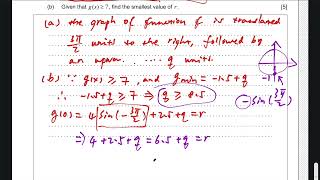 (b) Given that g(x) ≥ 7, find the smallest value of r. [5]
(a) the graph of function f is translated
3π/2 units to the right, followed by
an upwar..... q units.
(b) ∵ g(x) ≥ 7, and gmin = -1.5+q
∴ -1.5+q ≥ 7 ⇒ q ≥ 8.5
g(0) = 4 sin(-3π/2) + 2.5+q = r
⇒ 4+2.5+q = 6.5+q = r
-1
-sin(3π/2)